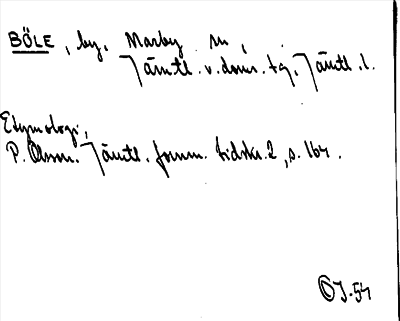 BÖLE, by, Marby sn,
Jämtl. v. doms. tg, Jämtl. l.
Etymologi,
P. Olsson. Jämtl. fornm. tidskr. 2, s. 164.
©J-54